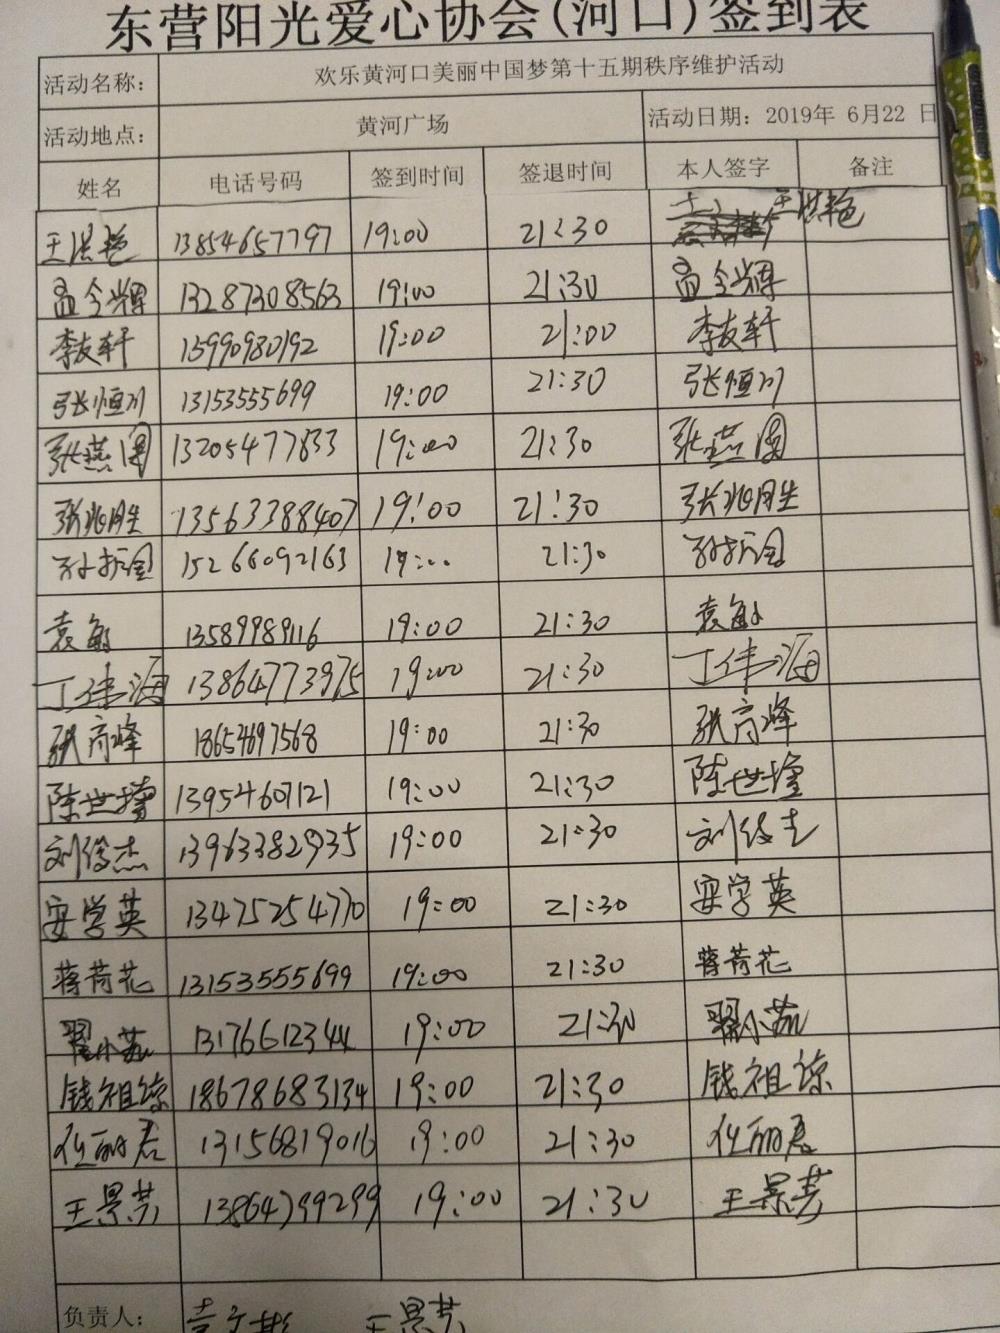 东营阳光爱心协会(河口)签到表
活动名称： 欢乐黄河口美丽中国梦第十五期秩序维护活动
活动地点： 黄河广场 活动日期：2019年 6月22 日
姓名 电话号码 签到时间 签退时间 本人签字 备注
王洪艳 13854657797 19:00 21:30 王洪艳
孟令辉 13287308563 19:00 21:30 孟令辉
李友轩 15990980192 19:00 21:00 李友轩
张恒川 13153555699 19:00 21:30 张恒川
张燕 13205477833 19:00 21:30 张燕
张兆胜 13563388407 19:00 21:30 张兆胜
孙振国 15266092163 19:00 21:30 孙振国
袁敏 13589989116 19:00 21:30 袁敏
丁伟海 13864773975 19:00 21:30 丁伟海
张高峰 18654697568 19:00 21:30 张高峰
陈世增 13954607121 19:00 21:30 陈世增
刘俊杰 13963382935 19:00 21:30 刘俊杰
安学英 13475254770 19:00 21:30 安学英
蒋荷花 13153555699 19:00 21:30 蒋荷花
翟小茹 13176612344 19:00 21:30 翟小茹
钱祖谅 18678683134 19:00 21:30 钱祖谅
任丽君 13156819016 19:00 21:30 任丽君
王景芳 13864799299 19:00 21:30 王景芳
负责人： 王景芳